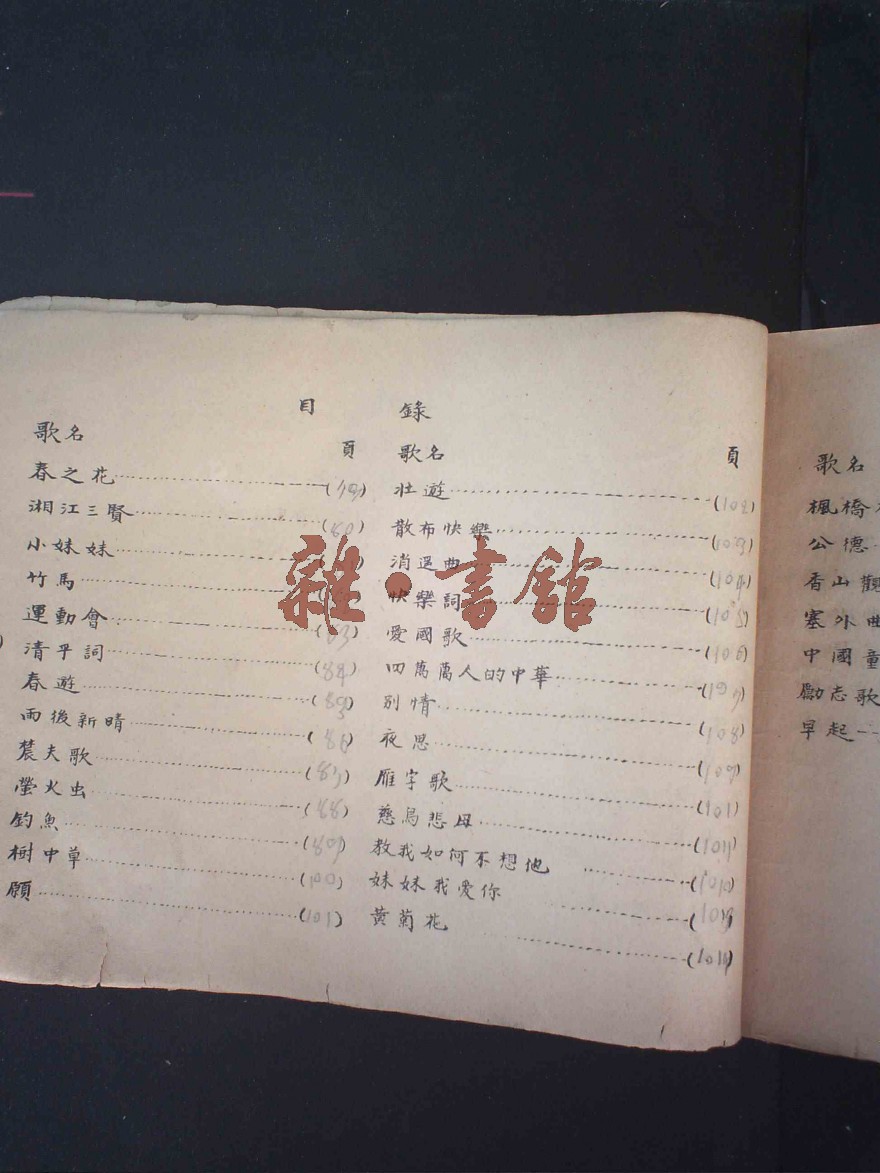 目錄
歌名 頁
春之花 (79)
湘江三賢 (80)
小妹妹
竹馬
運動會 (83)
清平詞 (84)
春遊 (85)
雨後新晴 (86)
農夫歌 (87)
螢火虫 (88)
釣魚 (89)
樹中草 (100)
願 (101)
歌名 頁
壯遊 (102)
散布快樂 (103)
消遥曲 (104)
快樂詞 (105)
愛國歌 (106)
四萬萬人的中華 (107)
別情 (108)
夜思 (109)
雁字歌 (101)
慈烏悲母 (1011)
教我如何不想他
妹妹我愛你
黃菊花
歌名
楓橋
公德
香山觀
塞外曲
中國童
勵志歌
早起
雜·書館